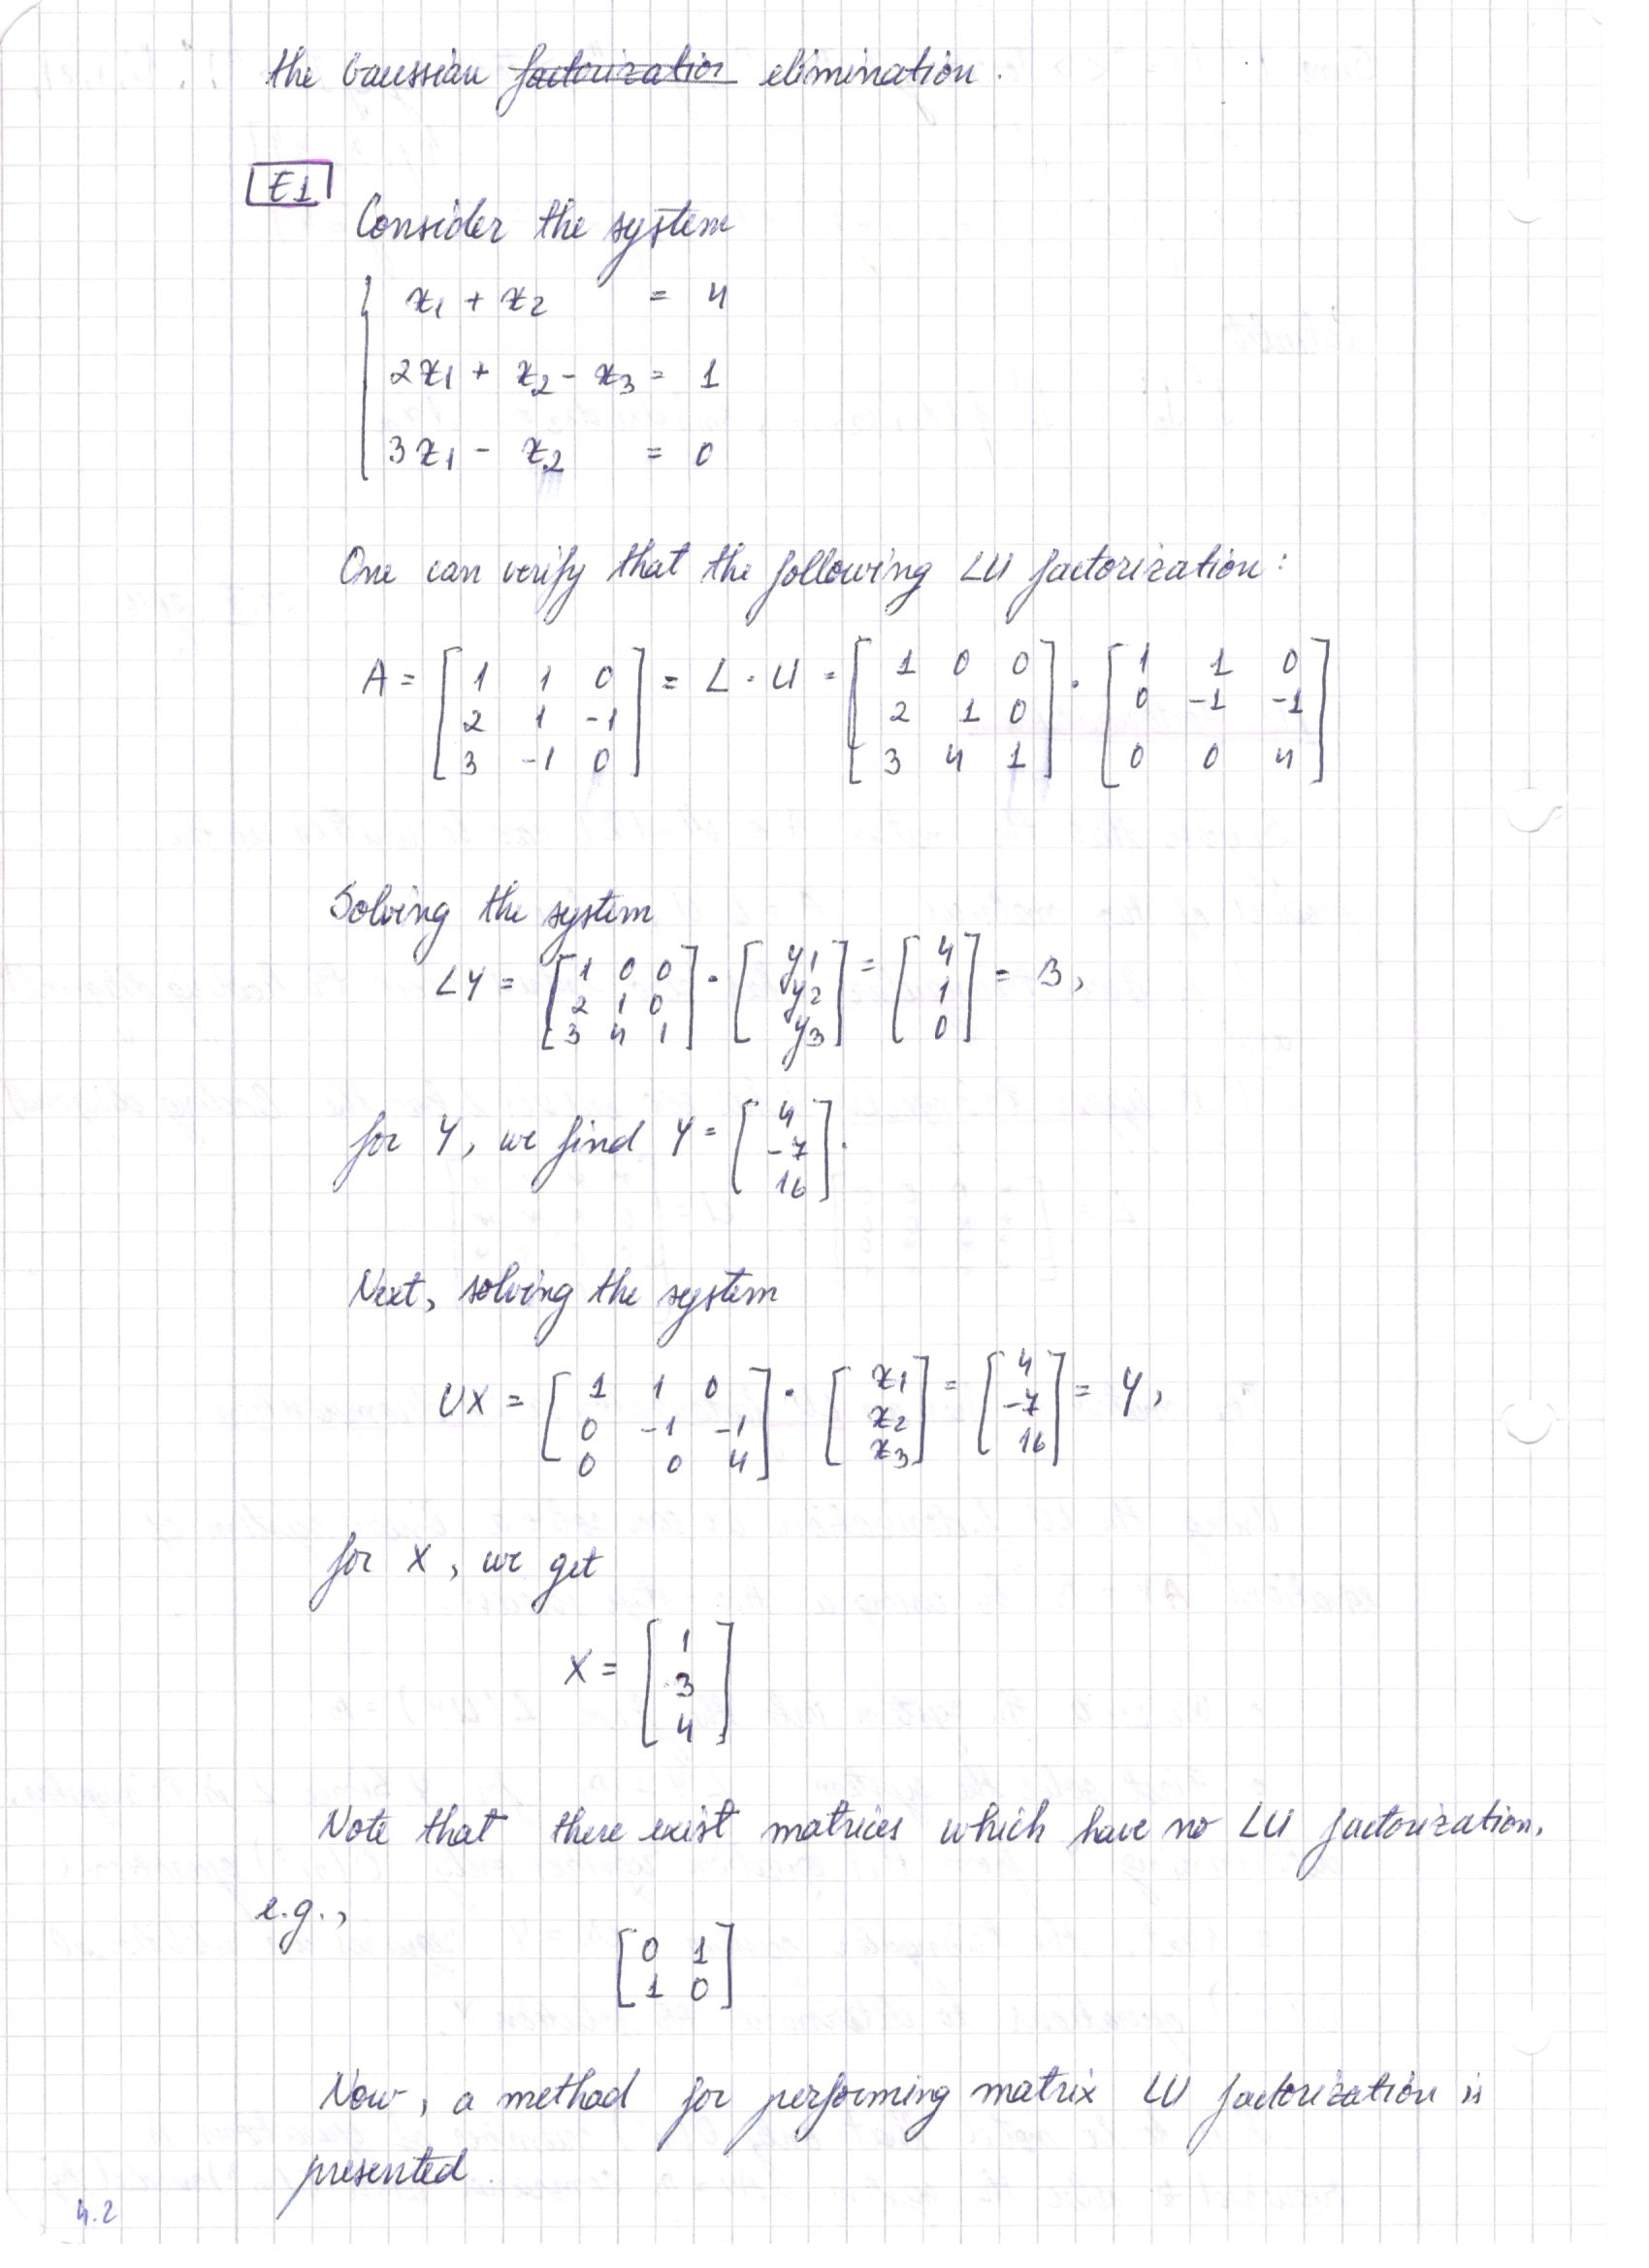 the Gaussian factorization elimination.
E1
Consider the system
x1 + x2 = 4
2x1 + x2 - x3 = 1
3x1 - x2 = 0
One can verify that the following LU factorization:
A = [ 1 1 0 ; 2 1 -1 ; 3 -1 0 ] = L · U = [ 1 0 0 ; 2 1 0 ; 3 4 1 ] · [ 1 1 0 ; 0 -1 -1 ; 0 0 4 ]
Solving the system
LY = [ 1 0 0 ; 2 1 0 ; 3 4 1 ] · [ y1 ; y2 ; y3 ] = [ 4 ; 1 ; 0 ] = B,
for Y, we find Y = [ 4 ; -7 ; 16 ].
Next, solving the system
UX = [ 1 1 0 ; 0 -1 -1 ; 0 0 4 ] · [ x1 ; x2 ; x3 ] = [ 4 ; -7 ; 16 ] = Y,
for X, we get
X = [ 1 ; 3 ; 4 ]
Note that there exist matrices which have no LU factorization,
e.g.,
[ 0 1 ; 1 0 ]
Now, a method for performing matrix LU factorization is
presented.
4.2